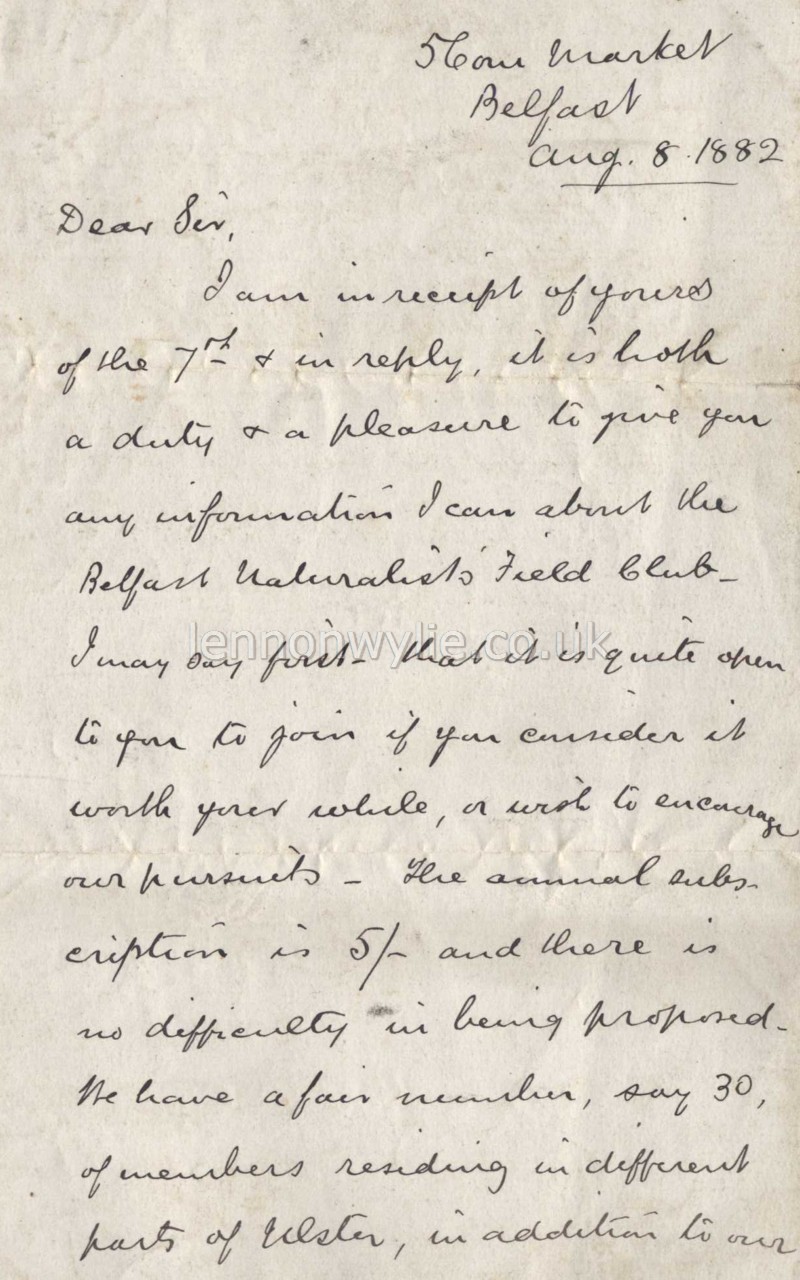 5 Corn Market
Belfast
Aug. 8. 1882
Dear Sir,
I am in receipt of yours
of the 7th & in reply, it is both
a duty & a pleasure to give you
any information I can about the
Belfast Naturalists' Field Club -
lennonwylie.co.uk
I may say first - that it is quite open
to you to join if you consider it
worth your while, or wish to encourage
our pursuits - The annual subs-
cription is 5/- and there is
no difficulty in being proposed -
We have a fair number, say 30,
of members residing in different
parts of Ulster, in addition to our